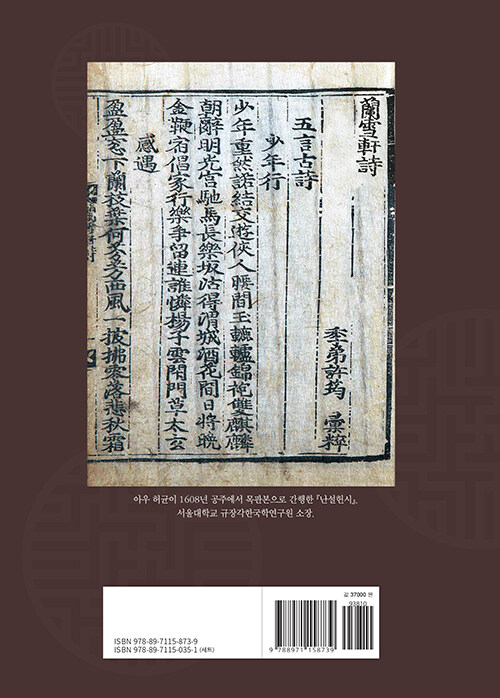 蘭雪軒詩
季弟許筠 彙粹
五言古詩
少年行
少年重然諾結交遊俠人腰間玉轆轤錦袍雙麒麟
朝辭明光宮馳馬長樂坂沽得渭城酒花間日將晚
金鞭宿倡家行樂爭留連誰憐揚子雲閉門草太玄
感遇
盈盈窓下蘭枝葉何芬芳西風一披拂零落悲秋霜
아우 허균이 1608년 공주에서 목판본으로 간행한 『난설헌시』.
서울대학교 규장각한국학연구원 소장.
값 37000 원
93810
9 788971 158739
ISBN 978-89-7115-873-9
ISBN 978-89-7115-035-1 (세트)